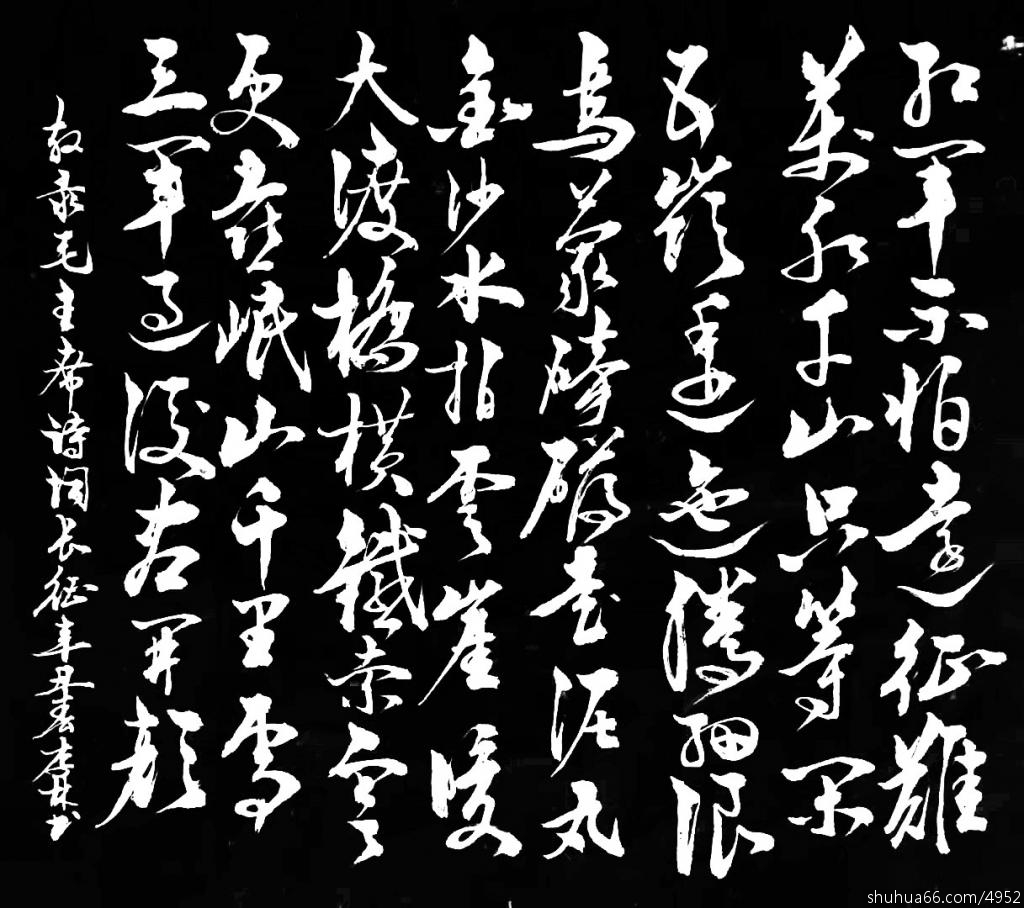 红军不怕遠征難
萬水千山只等闲
五嶺逶迤腾细浪
烏蒙磅礴走泥丸
金沙水拍雲崖暖
大渡橋横鐵索寒
更喜岷山千里雪
三军过後尽开颜
敬录毛主席诗词长征辛丑春李林书
shuhua66.com/4952